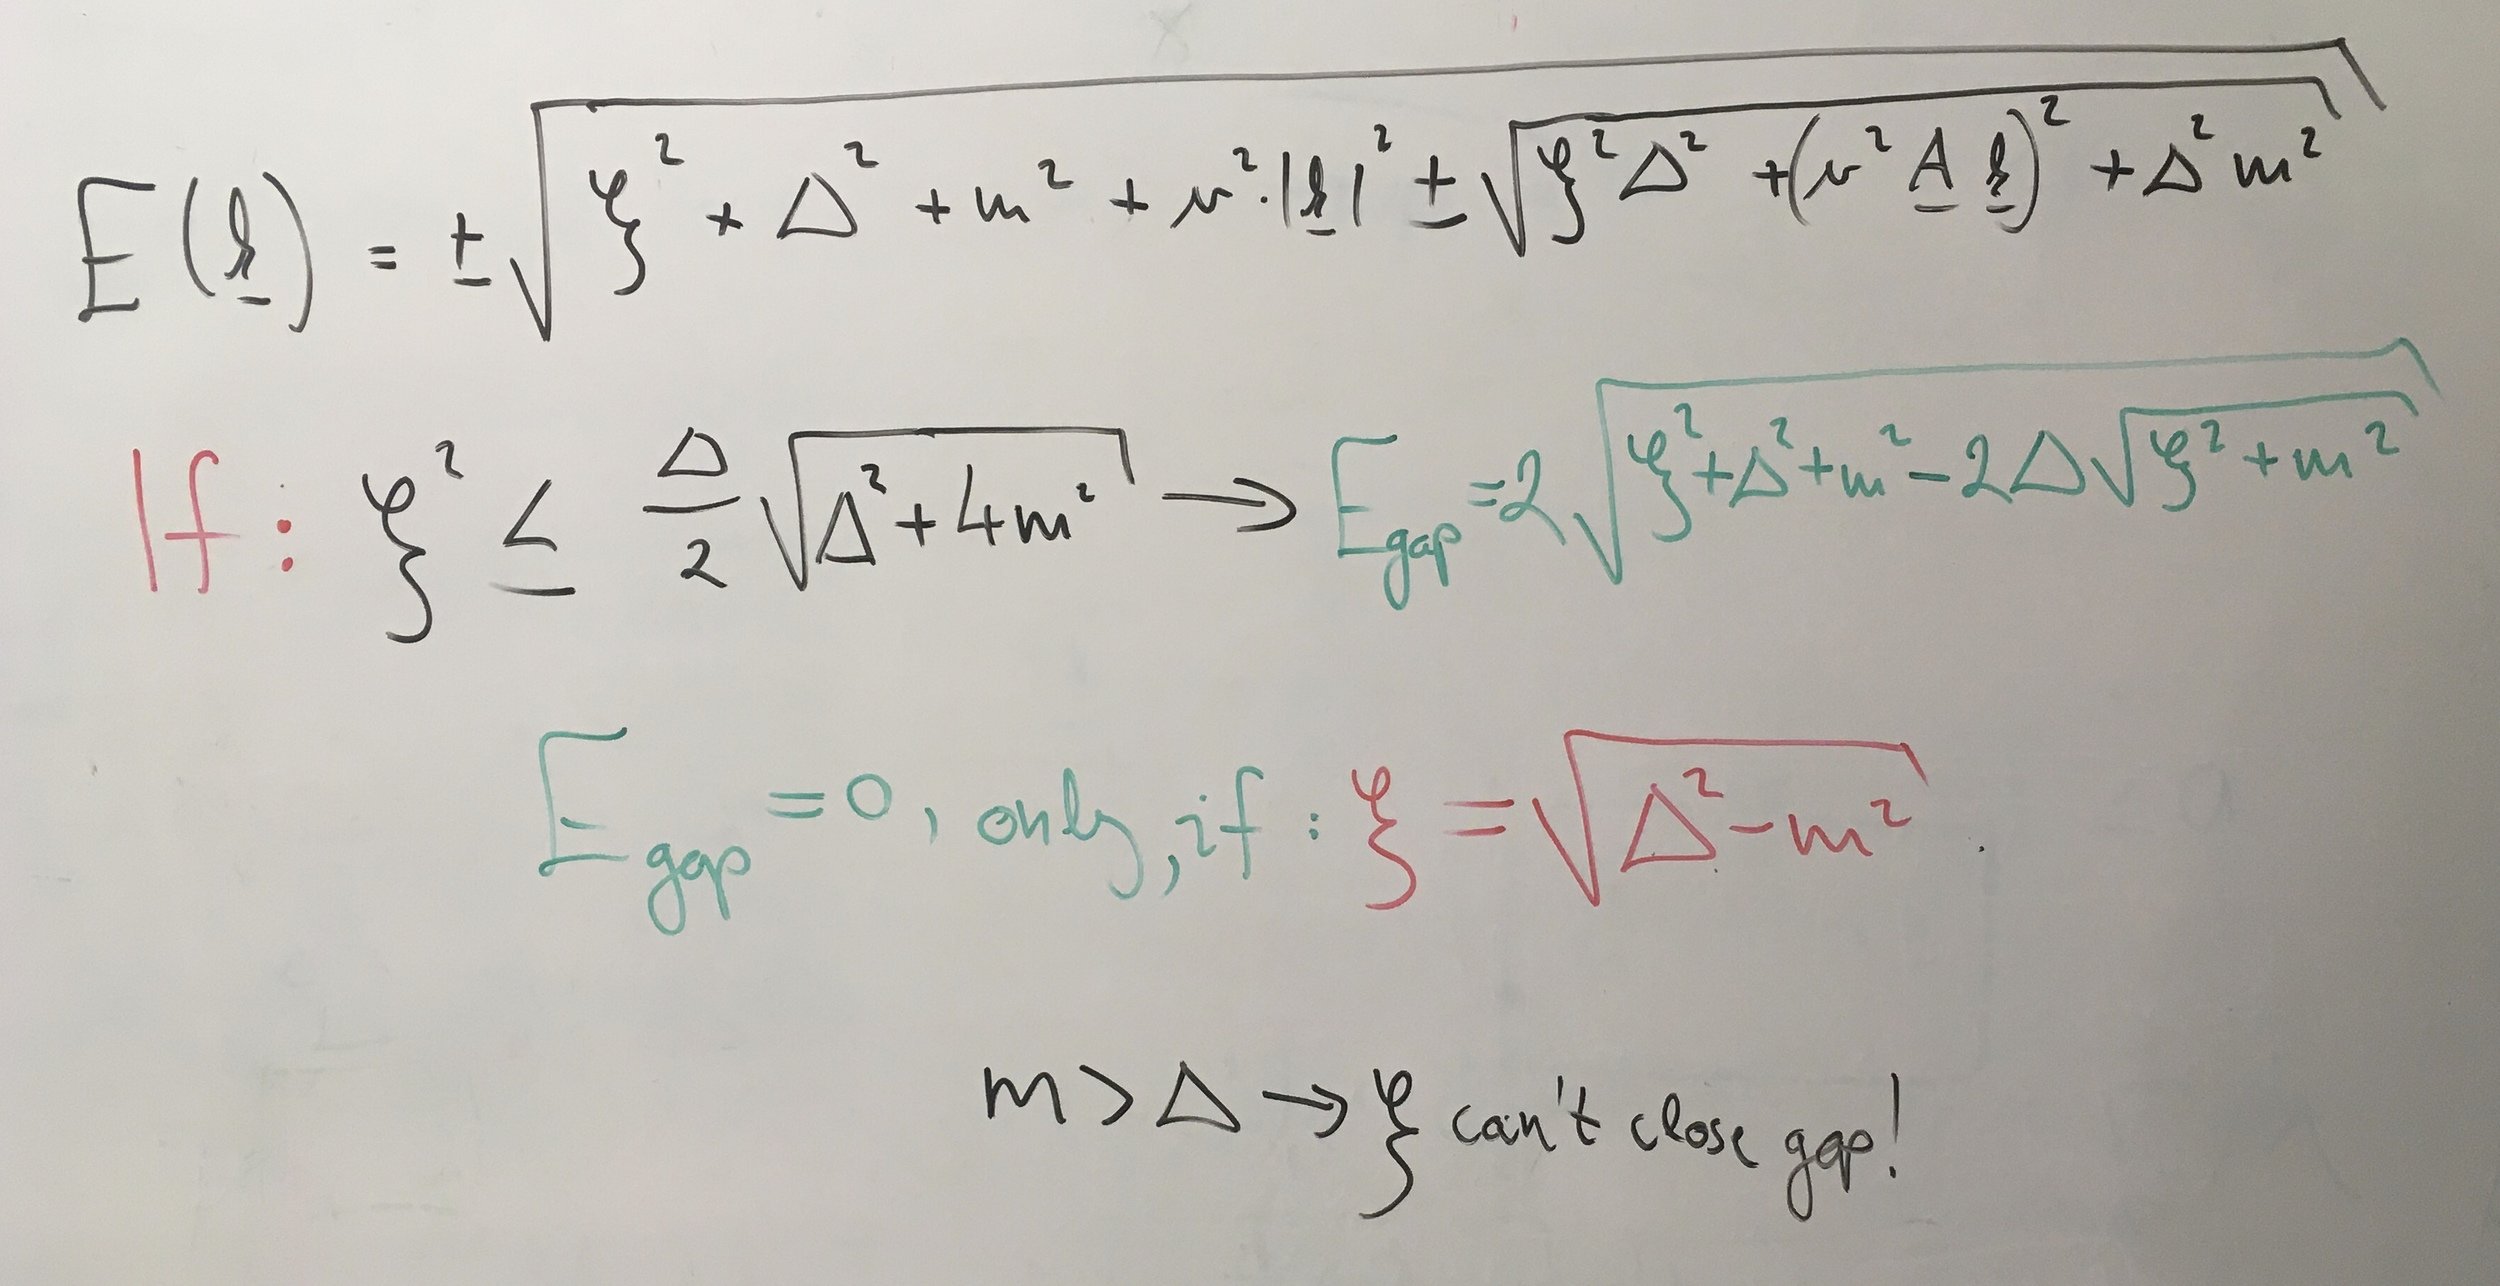 E(k) = ±√(ξ² + Δ² + m² + v²·|k|² ± √(ξ²Δ² + (v² A k)² + Δ²m²))
If: ξ² ≤ Δ/2 √(Δ² + 4m²) → E_gap = 2√(ξ² + Δ² + m² − 2Δ√(ξ² + m²))
E_gap = 0, only, if: ξ = √(Δ² − m²).
m > Δ → ξ can't close gap!